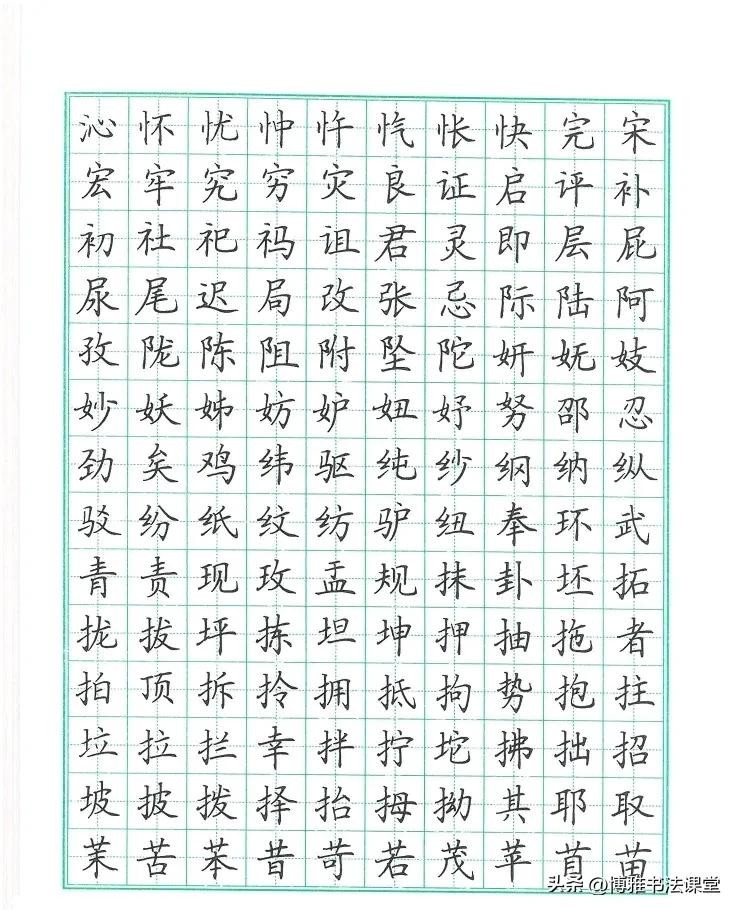 沁怀忧忡忤忾怅快完宋
宏牢究穷灾良证启评补
初社祀祃诅君灵即层屁
尿尾迟局改张忌际陆阿
孜陇陈阻附坠陀妍妩妓
妙妖姊妨妒妞妤努邵忍
劲矣鸡纬驱纯纱纲纳纵
驳纷纸纹纺驴纽奉环武
青责现玫盂规抹卦坯拓
拢拔坪拣坦坤押抽拖者
拍顶拆拎拥抵拘势抱拄
垃拉拦幸拌拧坨拂拙招
坡披拨择抬拇拗其耶取
茉苦苯昔苛若茂苹苜苗
头条 @博雅书法课堂